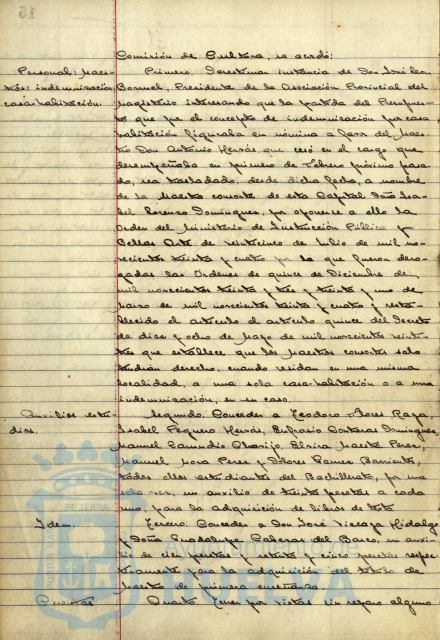 Comisión de Cultura, se acordó:
Personal: Maes- Primero. Desestimar instancia de Don José Leon
tros: indemnización Bormel, Presidente de la Asociación Provincial del
casa-habitación. Magisterio interesando que la partida del Presupues-
to que por el concepto de indemnización por casa
habitación figuraba en nómina a favor del Maes-
tro Don Antonio Hervás, que cesó en el cargo que
desempeñaba en primero de Febrero próximo pasa-
do, sea trasladado, desde dicha fecha, a nombre
de la Maestra consorte de esta Capital Doña Isa-
bel Lorenzo Domínguez, por oponerse a ello la
Orden del Ministerio de Instrucción Pública y
Bellas Artes de veinticinco de Julio de mil no-
vecientos treinta y cuatro por la que fueron dero-
gadas las Ordenes de quince de Diciembre de
mil novecientos treinta y tres y treinta y uno de
Marzo de mil novecientos treinta y cuatro y resta-
blecido el artículo el artículo quince del Decreto
de diez y ocho de Mayo de mil novecientos veinti-
tres que establece que los Maestros consortes solo
tendrán derecho, cuando residan en una misma
localidad, a una sola casa-habitación o a una
indemnización, en su caso.
Auxilios estu- Segundo. Conceder a Teodoro Flores Raya,
dios. Isabel Peguero Hervás, Eufrasio Contreras Domínguez,
Manuel Zamudio Elvira Maeso Perez,
Manuel Mora Perez y Dolores Ramos Barriento,
todos ellos estudiantes del Bachillerato, por una
sola vez, un auxilio de treinta pesetas a cada
uno, para la adquisición de libros de texto
Idem. Tercero. Conceder a Don José Vizcaya Hidalgo
y Doña Guadalupe Caberas del Barco, un auxi-
lio de cien pesetas y setenta y cinco pesetas respec-
tivamente para la adquisición del título de
Maestro de primera enseñanza.
Cuentas Cuarto. Tener por vistas sin reparo alguno